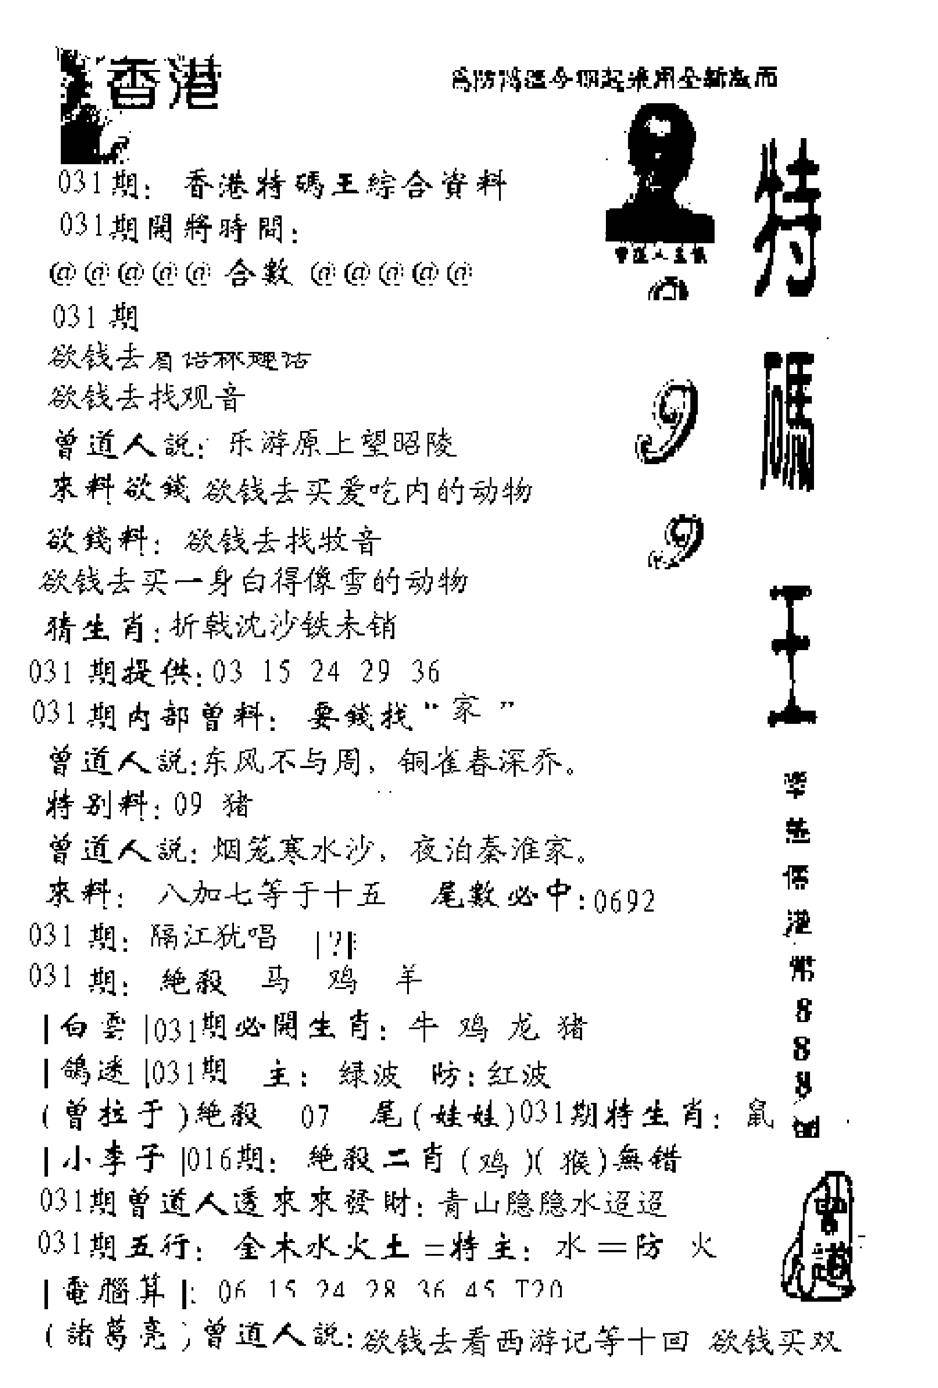 香港
為防偽造今期起採用全新版面
031期：香港特碼王綜合資料
031期開將時間：
@@@@@合數@@@@@
031期
欲钱去看
欲钱去找观音
曾道人説：乐游原上望昭陵
來料欲錢欲钱去买爱吃内的动物
欲錢料：欲钱去找牧音
欲钱去买一身白得像雪的动物
猜生肖：折戟沈沙铁未销
031期提供：03 15 24 29 36
031期内部曾料：要錢找“家”
曾道人説：东风不与周，铜雀春深乔。
特别料：09 猪
曾道人説：烟笼寒水沙，夜泊秦淮家。
來料：八加七等于十五 尾數必中：0692
031期：隔江犹唱 |?|
031期：絶殺 马 鸡 羊
|白雲|031期必開生肖：牛 鸡 龙 猪
|鴿迷|031期 主：绿波 防：红波
(曾拉于)絶殺 07 尾(娃娃)031期特生肖：鼠
|小李子|016期：絶殺二肖(鸡)(猴)無錯
031期曾道人透來來發財：青山隐隐水迢迢
031期五行：金木水火土=特主：水=防 火
|電腦算|：06 15 24 28 36 45 T20
(諸葛亮)曾道人説：欲钱去看西游记等十回 欲钱买双
特碼王
99
港幣888
曾道